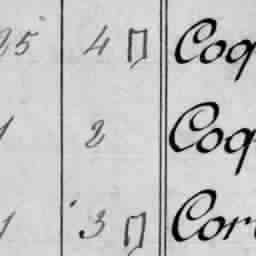 25 4 П Coq
1 2 Coq
1 3 П Cor